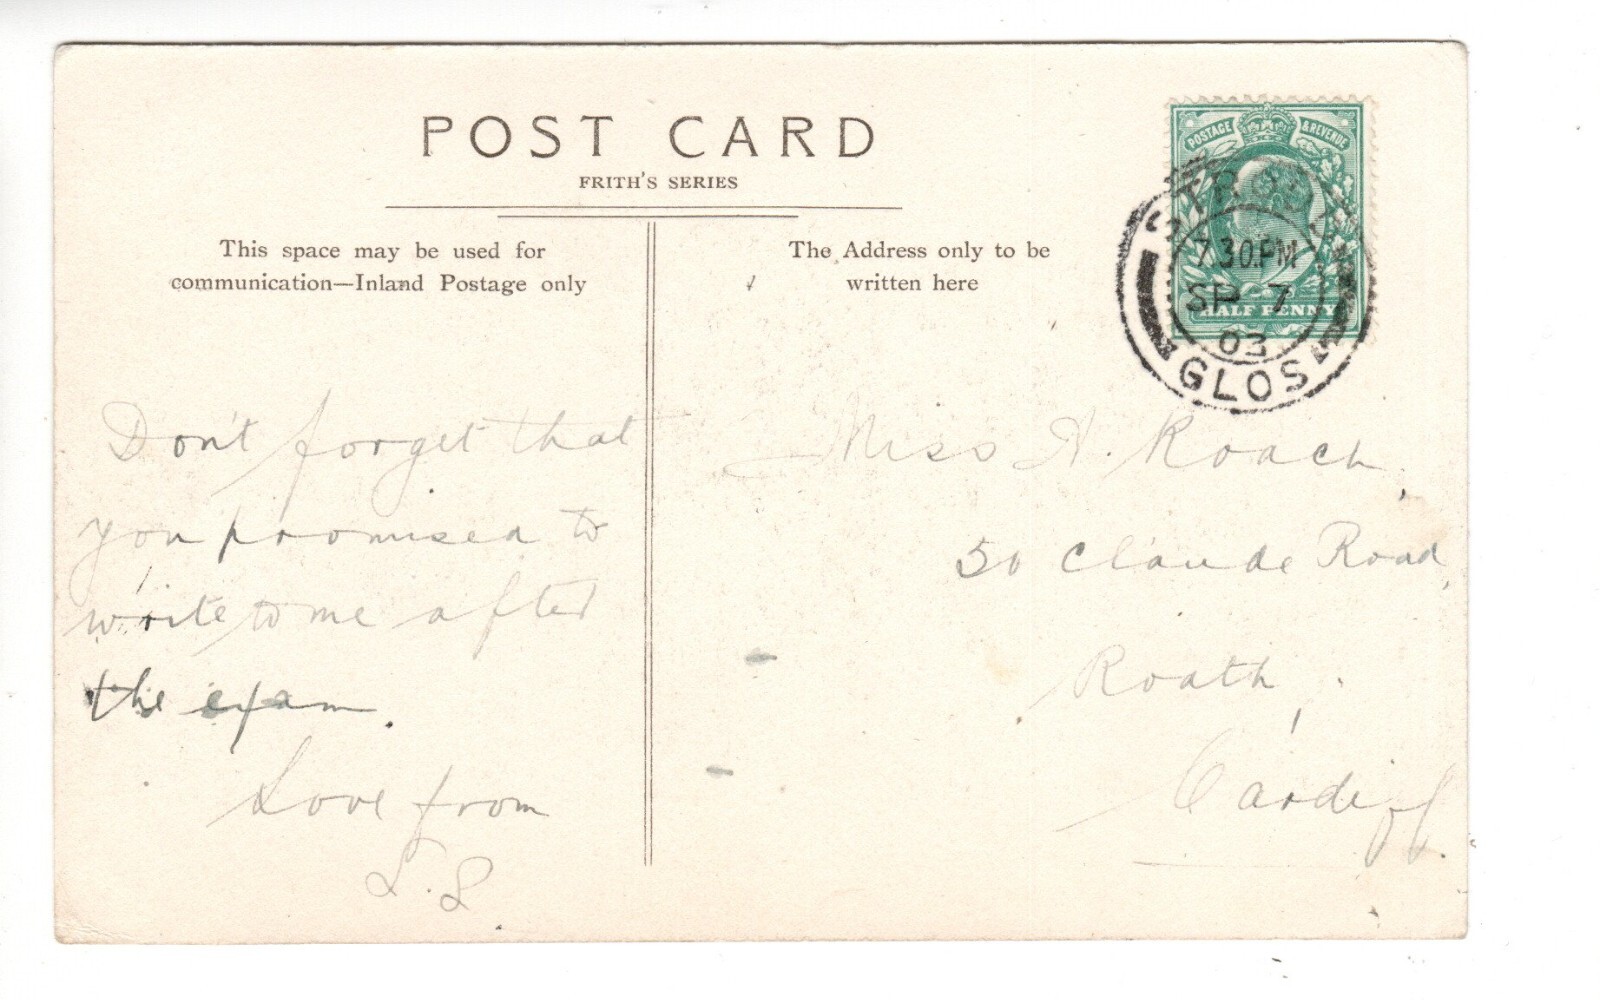 POST CARD
FRITH'S SERIES
This space may be used for
communication—Inland Postage only
The Address only to be
written here
POSTAGE & REVENUE
HALF PENNY
7.30.PM
SP 7
03
GLOS
Don't forget that
you promised to
write to me after
the exam.
Love from
Miss A. Roach,
50 Claude Road,
Roath,
Cardiff.